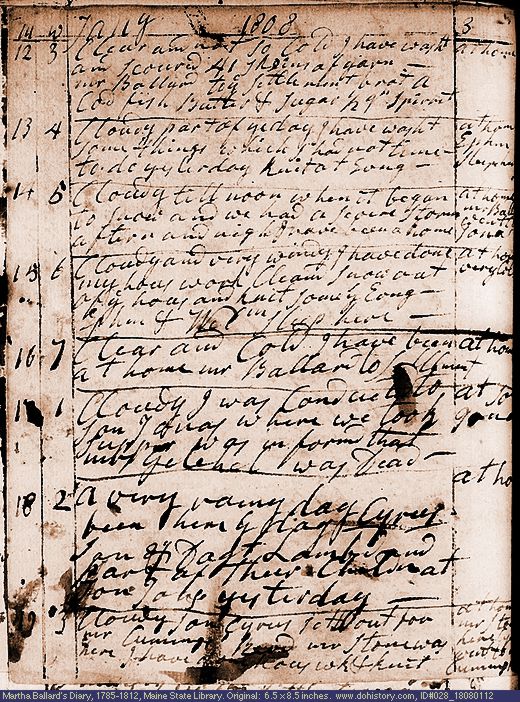 Jany 1808 3
12 3 Clear and not So Cold I have washt at home
and Scourd 41 Skeins of yarn –
mr Ballard to Settlment brot a
Cod fish Butter & Sugar Spirrit
13 4 Cloudy part of ye day I have washt at home
Some things which I had not time Ephm
to do yesterday knit at Evng –
14 5 Cloudy till noon when it began at home
to Snow and we had a Severe Storm
aftern and night I have been at home
15 6 Cloudy and very windy I have done at home
my hous work Cleand Snow out very Cold
of ye hous and knit Some Evng –
Ephm & Wm Sleep here –
16 7 Clear and Cold I have been at home
at home mr Ballard to Settlment
17 1 Cloudy I was Conducted to at So
Son Jonas where we took
Supper was informd that
mrs Getchel was Dead –
18 2 a very rainy day Cyrus at ho
been here ye day
Son & Dagt Lambd and
part of their Children at
Son yesterday –
19 3 Cloudy Son Cyrus Sett out for at home
mr Cummings mr Stone was
here I have hous wk & knit
Martha Ballard's Diary, 1785-1812, Maine State Library. Original: 6.5 x 8.5 inches. www.dohistory.com, ID#028_18080112